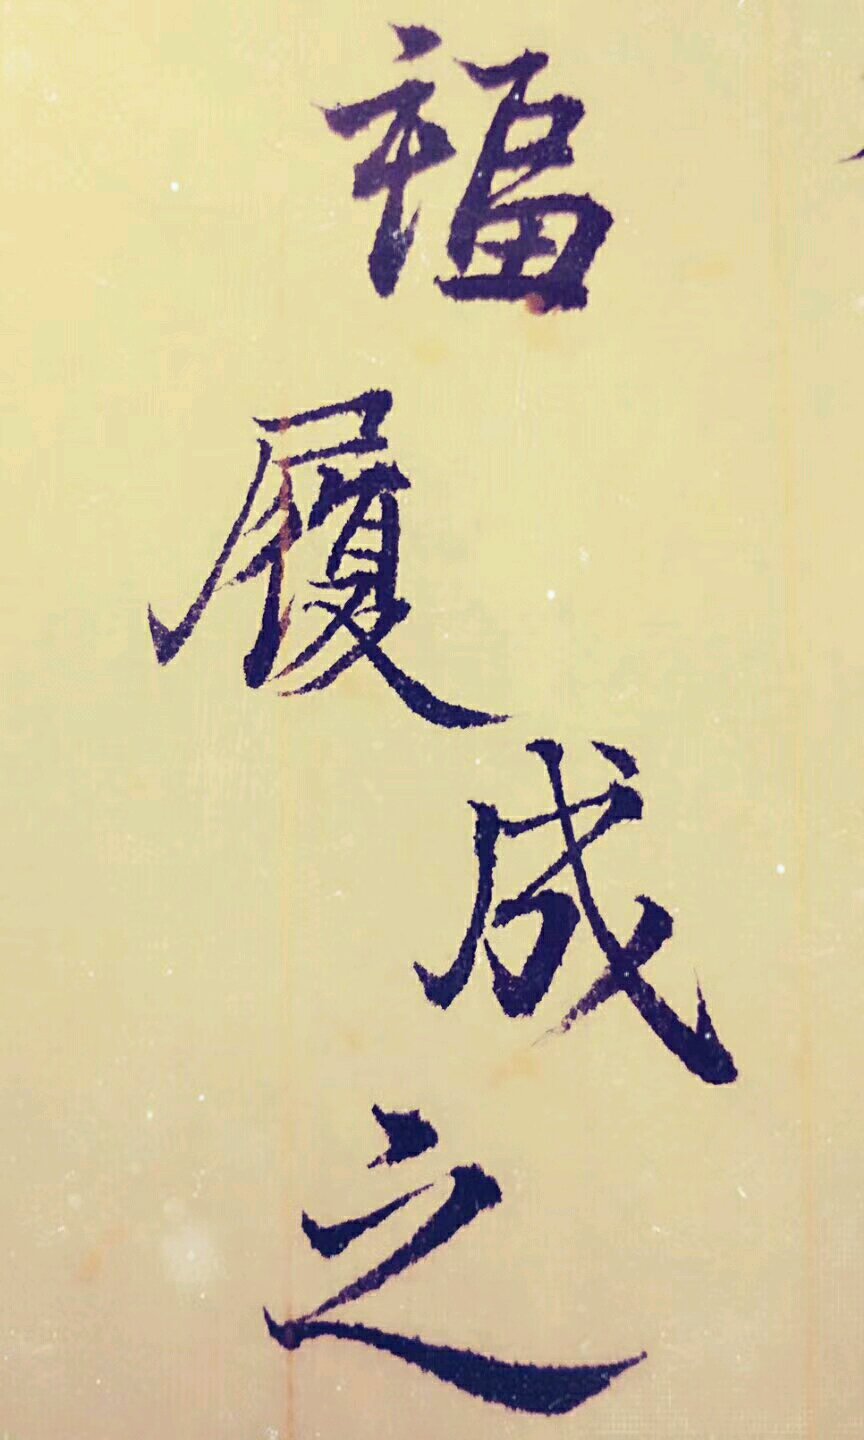 福履成之